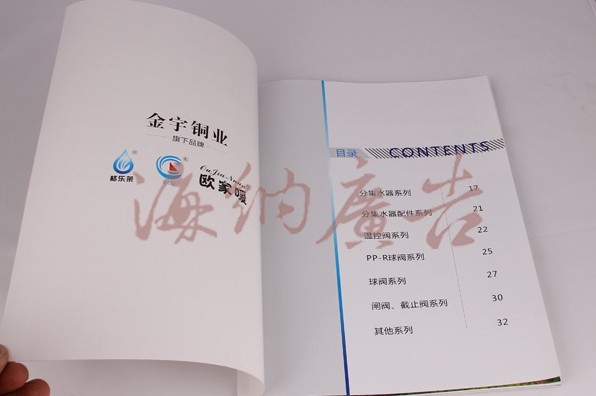 金宇铜业
旗下品牌
格乐莱
OuJiaNuan
欧家暖
目录 CONTENTS
分集水器系列 17
分集水器配件系列 21
温控阀系列 22
PP-R球阀系列 25
球阀系列 27
闸阀、截止阀系列 30
其他系列 32
海纳廣告